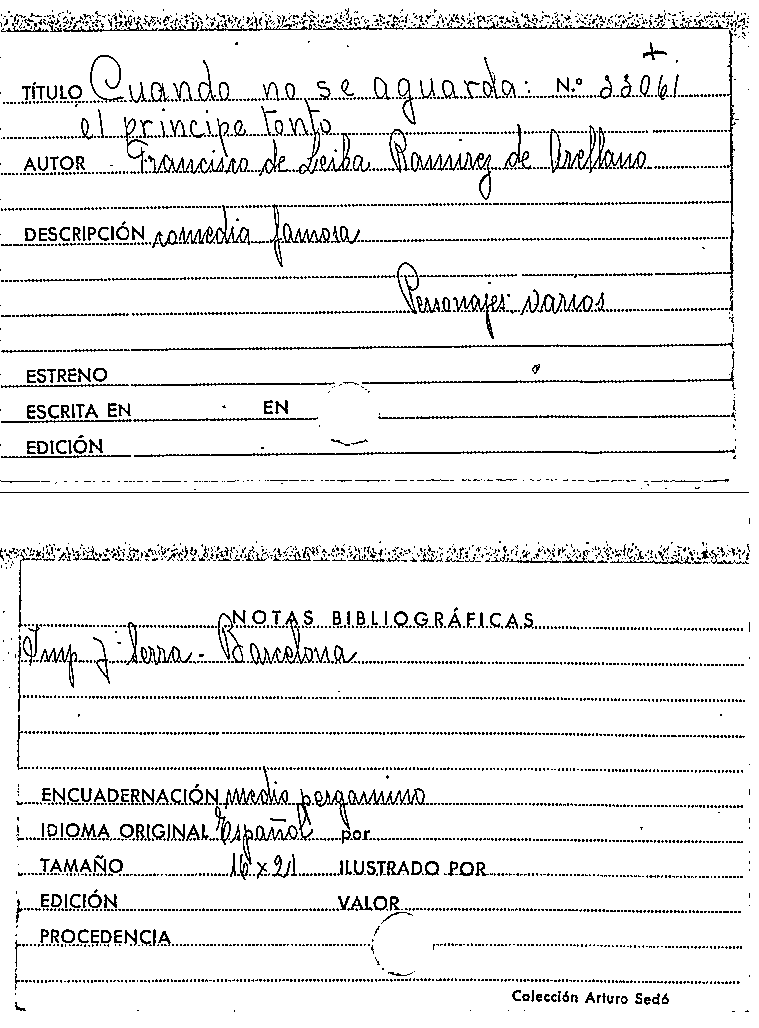 +
TÍTULO Cuando no se aguarda: N.º 33061
el principe tonto
AUTOR Francisco de Leiba Ramirez de Arellano
DESCRIPCIÓN comedia famosa
Personajes: varios
ESTRENO
ESCRITA EN EN
EDICIÓN
NOTAS BIBLIOGRÁFICAS
Imp J. Serra - Barcelona
ENCUADERNACIÓN medio pergamino
IDIOMA ORIGINAL Español por
TAMAÑO 16 x 21 ILUSTRADO POR
EDICIÓN VALOR
PROCEDENCIA
Colección Arturo Sedó